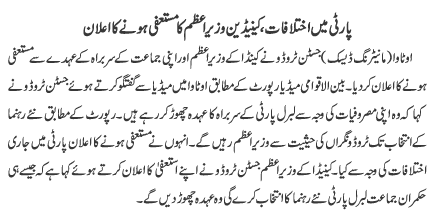 پارٹی میں اختلافات، کینیڈین وزیراعظم کا مستعفی ہونے کا اعلان
اوٹاوا (مانیٹرنگ ڈیسک) جسٹن ٹروڈو نے کینیڈا کے وزیراعظم اور اپنی جماعت کے سربراہ کے عہدے سے مستعفی
ہونے کا اعلان کر دیا۔ بین الاقوامی میڈیا رپورٹ کے مطابق اوٹاوا میں میڈیا سے گفتگو کرتے ہوئے جسٹن ٹروڈو نے
کہا کہ وہ اپنی مصروفیات کی وجہ سے لبرل پارٹی کے سربراہ کا عہدہ چھوڑ کر رہے ہیں۔ رپورٹ کے مطابق نئے رہنما
کے انتخاب تک ٹروڈو نگراں کی حیثیت سے وزیراعظم رہیں گے۔ انہوں نے مستعفی ہونے کا اعلان پارٹی میں جاری
اختلافات کی وجہ سے کیا۔ کینیڈا کے وزیراعظم جسٹن ٹروڈو نے اپنے استعفیٰ کا اعلان کرتے ہوئے کہا ہے کہ جیسے ہی
حکمران جماعت لبرل پارٹی نئے رہنما کا انتخاب کرے گی وہ عہدہ چھوڑ دیں گے۔